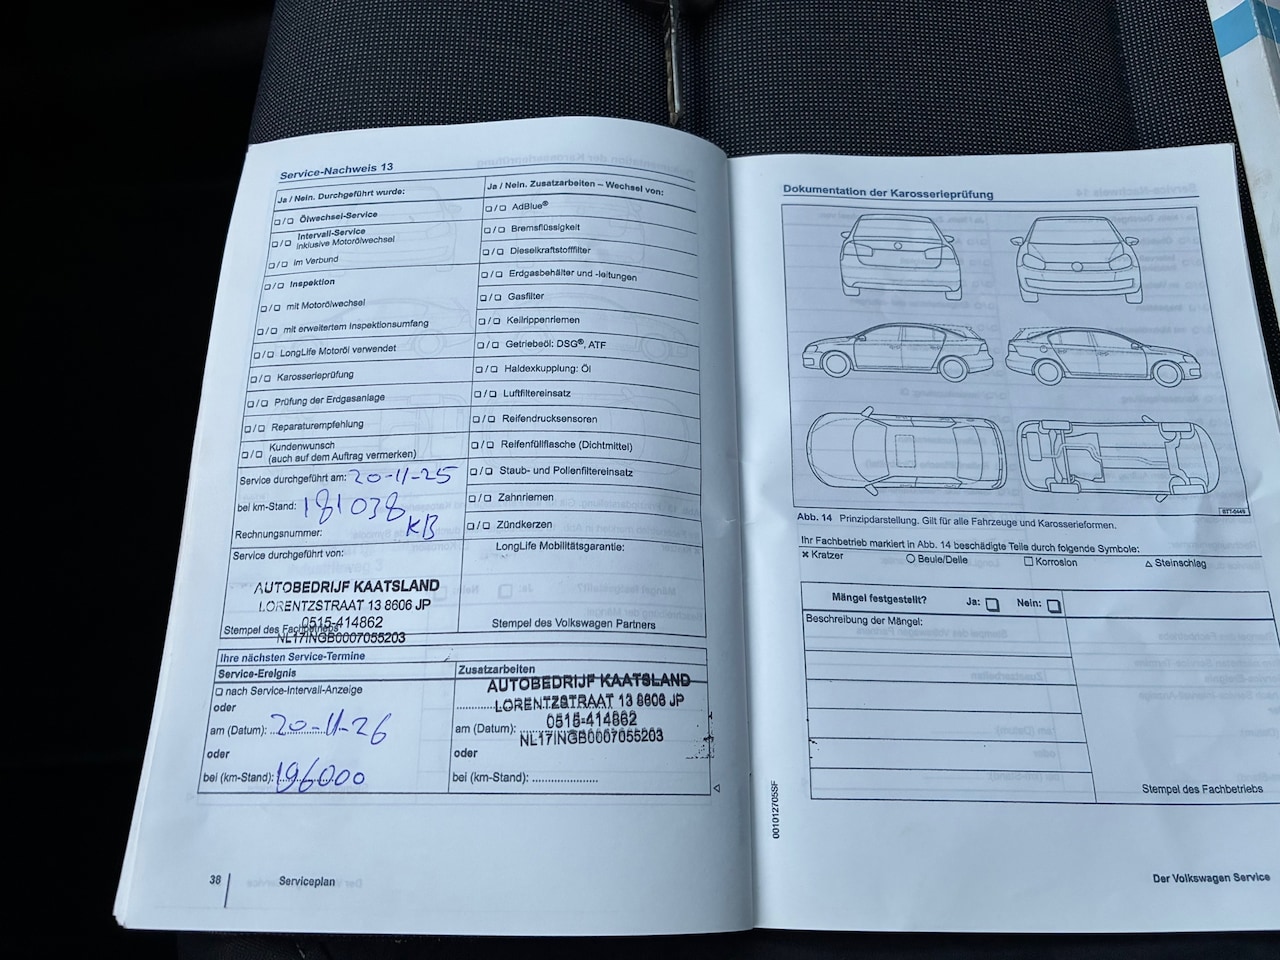 Service-Nachweis 13
Ja / Nein. Durchgeführt wurde:
☐/☐ Ölwechsel-Service
☐/☐ Intervall-Service
inklusive Motorölwechsel
☐/☐ im Verbund
☐/☐ Inspektion
☐/☐ mit Motorölwechsel
☐/☐ mit erweitertem Inspektionsumfang
☐/☐ LongLife Motoröl verwendet
☐/☐ Karosserieprüfung
☐/☐ Prüfung der Erdgasanlage
☐/☐ Reparaturempfehlung
☐/☐ Kundenwunsch
(auch auf dem Auftrag vermerken)
Service durchgeführt am: 20-11-25
bei km-Stand: 181038
Rechnungsnummer: KB
Service durchgeführt von:
AUTOBEDRIJF KAATSLAND
LORENTZSTRAAT 13 8606 JP
0515-414862
Stempel des Fachbetriebs
NL17INGB0007055203
Ja / Nein. Zusatzarbeiten – Wechsel von:
☐/☐ AdBlue®
☐/☐ Bremsflüssigkeit
☐/☐ Dieselkraftstofffilter
☐/☐ Erdgasbehälter und -leitungen
☐/☐ Gasfilter
☐/☐ Keilrippenriemen
☐/☐ Getriebeöl: DSG®, ATF
☐/☐ Haldexkupplung: Öl
☐/☐ Luftfiltereinsatz
☐/☐ Reifendrucksensoren
☐/☐ Reifenfüllflasche (Dichtmittel)
☐/☐ Staub- und Pollenfiltereinsatz
☐/☐ Zahnriemen
☐/☐ Zündkerzen
LongLife Mobilitätsgarantie:
Stempel des Volkswagen Partners
Ihre nächsten Service-Termine
Service-Ereignis
☐ nach Service-Intervall-Anzeige
oder
am (Datum): 20-11-26
oder
bei (km-Stand): 196000
Zusatzarbeiten
AUTOBEDRIJF KAATSLAND
LORENTZSTRAAT 13 8606 JP
0515-414862
am (Datum):
NL17INGB0007055203
oder
bei (km-Stand): ..................
38
Serviceplan
Dokumentation der Karosserieprüfung
B7T-0449
Abb. 14 Prinzipdarstellung. Gilt für alle Fahrzeuge und Karosserieformen.
Ihr Fachbetrieb markiert in Abb. 14 beschädigte Teile durch folgende Symbole:
× Kratzer ○ Beule/Delle ☐ Korrosion △ Steinschlag
Mängel festgestellt? Ja: ☐ Nein: ☐
Beschreibung der Mängel:
Stempel des Fachbetriebs
001012705SF
Der Volkswagen Service